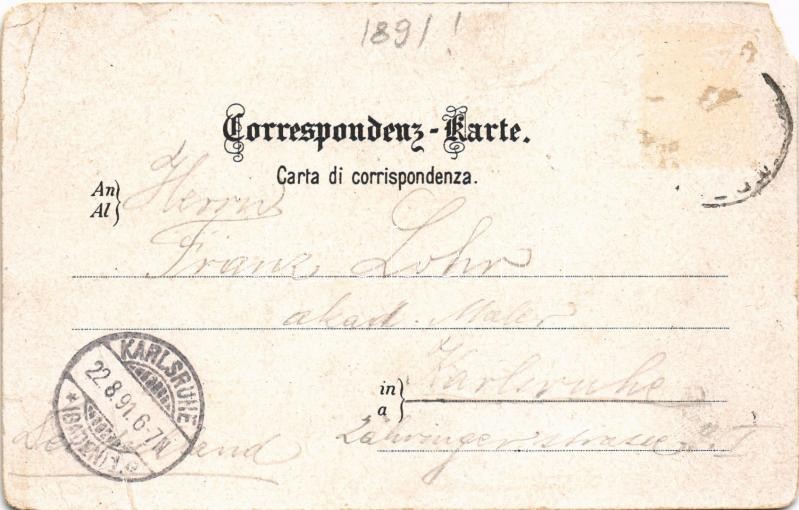 1891!
Correspondenz-Karte.
Carta di corrispondenza.
An
Al
Herrn
Franz Lohr
akad. Maler
in
a
Karlsruhe
Zähringerstrasse
Deutschland
KARLSRUHE
22.8.91.6-7N
* (BADEN)